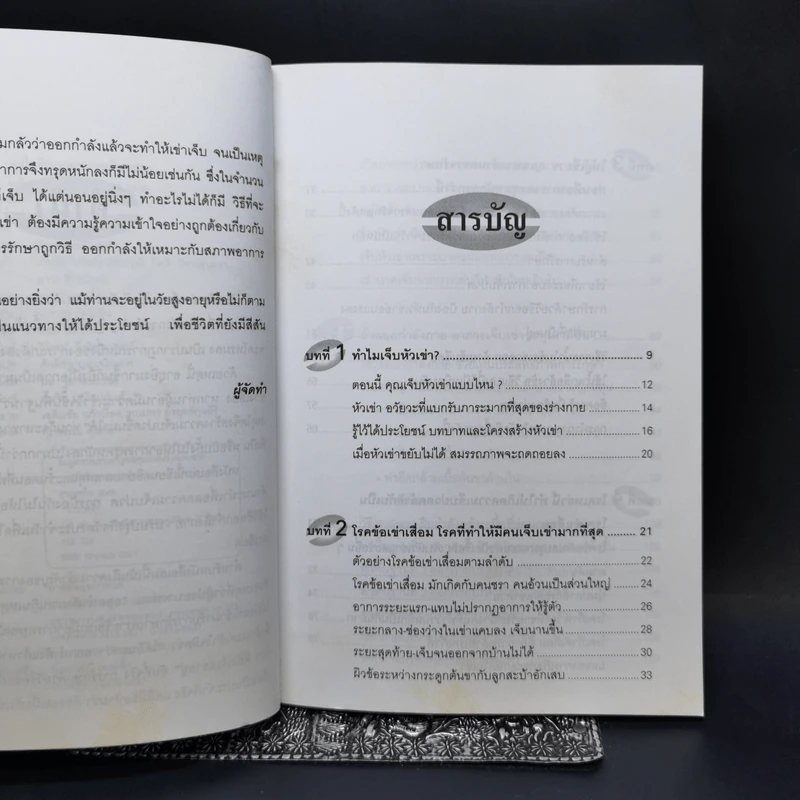 มกลัวว่าออกกำลังแล้วจะทำให้เข่าเจ็บ จนเป็นเหตุ
าการจึงทรุดหนักลงก็มีไม่น้อยเช่นกัน ซึ่งในจำนวน
เจ็บ ได้แต่นอนอยู่นิ่งๆ ทำอะไรไม่ได้ก็มี วิธีที่จะ
ข่า ต้องมีความรู้ความเข้าใจอย่างถูกต้องเกี่ยวกับ
รรักษาถูกวิธี ออกกำลังให้เหมาะกับสภาพอาการ
นอย่างยิ่งว่า แม้ท่านจะอยู่ในวัยสูงอายุหรือไม่ก็ตาม
ป็นแนวทางให้ได้ประโยชน์ เพื่อชีวิตที่ยังมีสีสัน
ผู้จัดทำ
สารบัญ
บทที่ 1 ทำไมเจ็บหัวเข่า? 9
ตอนนี้ คุณเจ็บหัวเข่าแบบไหน ? 12
หัวเข่า อวัยวะที่แบกรับภาระมากที่สุดของร่างกาย 14
รู้ไว้ได้ประโยชน์ บทบาทและโครงสร้างหัวเข่า 16
เมื่อหัวเข่าขยับไม่ได้ สมรรถภาพจะถดถอยลง 20
บทที่ 2 โรคข้อเข่าเสื่อม โรคที่ทำให้มีคนเจ็บเข่ามากที่สุด 21
ตัวอย่างโรคข้อเข่าเสื่อมตามลำดับ 22
โรคข้อเข่าเสื่อม มักเกิดกับคนชรา คนอ้วนเป็นส่วนใหญ่ 24
อาการระยะแรก-แทบไม่ปรากฏอาการให้รู้ตัว 26
ระยะกลาง-ช่องว่างในเข่าแคบลง เจ็บนานขึ้น 28
ระยะสุดท้าย-เจ็บจนออกจากบ้านไม่ได้ 30
ผิวข้อระหว่างกระดูกต้นขากับลูกสะบ้าอักเสบ 33